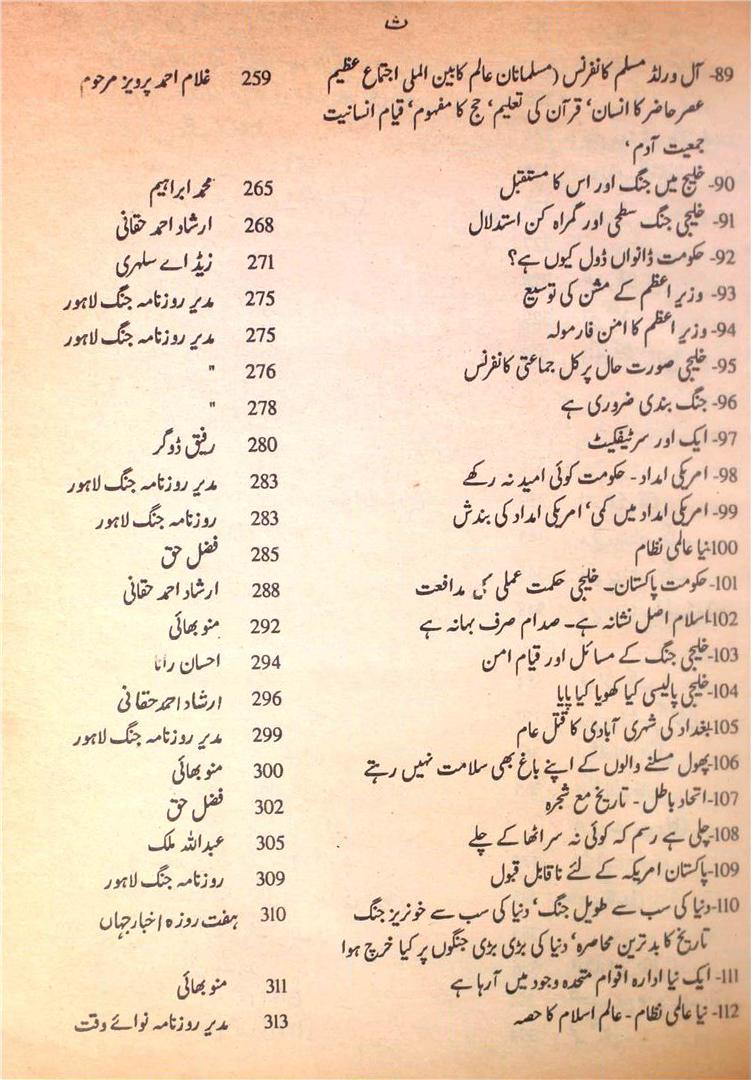 ث
89- آل ورلڈ مسلم کانفرنس (مسلمانان عالم کا بین الملی اجتماع عظیم 259 غلام احمد پرویز مرحوم
عصر حاضر کا انسان، قرآن کی تعلیم، حج کا مفہوم، قیام انسانیت
جمعیت آدم،
90- خلیج میں جنگ اور اس کا مستقبل 265 محمد ابراہیم
91- خلیجی جنگ سطحی اور گمراہ کن استدلال 268 ارشاد احمد حقانی
92- حکومت ڈانواں ڈول کیوں ہے؟ 271 زیڈ اے سلہری
93- وزیر اعظم کے مشن کی توسیع 275 مدیر روزنامہ جنگ لاہور
94- وزیر اعظم کا امن فارمولہ 275 مدیر روزنامہ جنگ لاہور
95- خلیجی صورت حال پر کل جماعتی کانفرنس 276 "
96- جنگ بندی ضروری ہے 278 "
97- ایک اور سرٹیفکیٹ 280 رفیق ڈوگر
98- امریکی امداد - حکومت کوئی امید نہ رکھے 283 مدیر روزنامہ جنگ لاہور
99- امریکی امداد میں کمی، امریکی امداد کی بندش 283 روزنامہ جنگ لاہور
100- نیا عالمی نظام 285 فضل حق
101- حکومت پاکستان۔ خلیجی حکمت عملی کی مدافعت 288 ارشاد احمد حقانی
102- اسلام اصل نشانہ ہے۔ صدام صرف بہانہ ہے 292 منو بھائی
103- خلیجی جنگ کے مسائل اور قیام امن 294 احسان رانا
104- خلیجی پالیسی کیا کھویا کیا پایا 296 ارشاد احمد حقانی
105- بغداد کی شہری آبادی کا قتل عام 299 مدیر روزنامہ جنگ لاہور
106- پھول مسلنے والوں کے اپنے باغ بھی سلامت نہیں رہتے 300 منو بھائی
107- اتحاد باطل - تاریخ مع شجرہ 302 فضل حق
108- چلی ہے رسم کہ کوئی نہ سر اٹھا کے چلے 305 عبداللہ ملک
109- پاکستان امریکہ کے لئے ناقابل قبول 309 روزنامہ جنگ لاہور
110- دنیا کی سب سے طویل جنگ، دنیا کی سب سے خونریز جنگ 310 ہفت روزہ اخبار جہاں
تاریخ کا بدترین محاصرہ، دنیا کی بڑی بڑی جنگوں پر کیا خرچ ہوا
111- ایک نیا ادارہ اقوام متحدہ وجود میں آرہا ہے 311 منو بھائی
112- نیا عالمی نظام - عالم اسلام کا حصہ 313 مدیر روزنامہ نوائے وقت